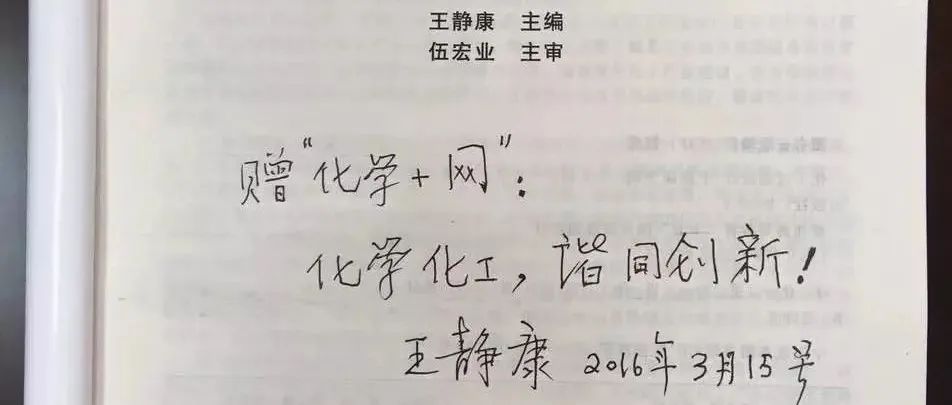 王静康 主编
伍宏业 主审
赠“化学+网”：
化学化工，谐同创新！
王静康 2016年3月15号